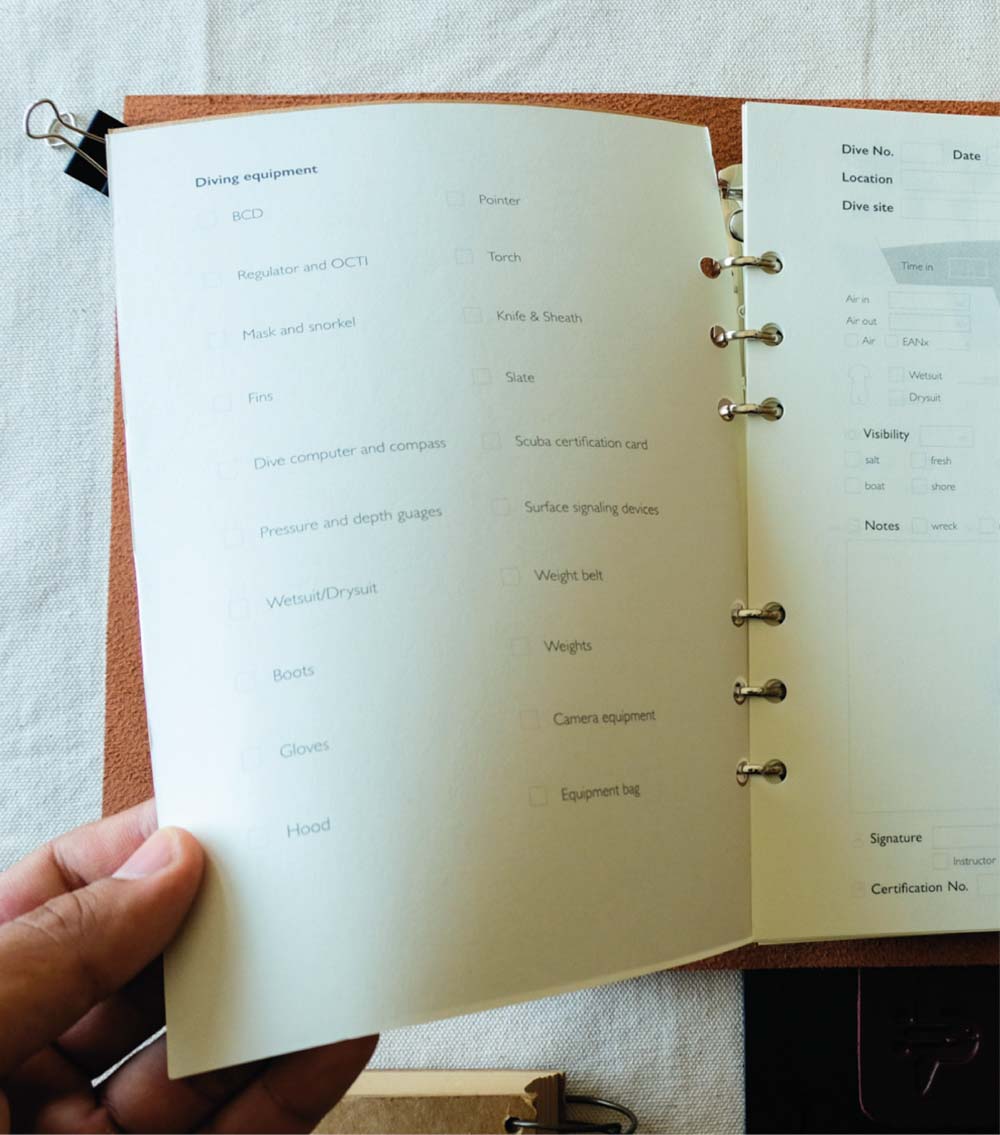 Diving equipment
BCD
Regulator and OCTI
Mask and snorkel
Fins
Dive computer and compass
Pressure and depth guages
Wetsuit/Drysuit
Boots
Gloves
Hood
Pointer
Torch
Knife & Sheath
Slate
Scuba certification card
Surface signaling devices
Weight belt
Weights
Camera equipment
Equipment bag
Dive No. Date
Location
Dive site
Time in
Air in
Air out
Air EANx
Wetsuit
Drysuit
Visibility
salt fresh
boat shore
Notes wreck
Signature
Instructor
Certification No.